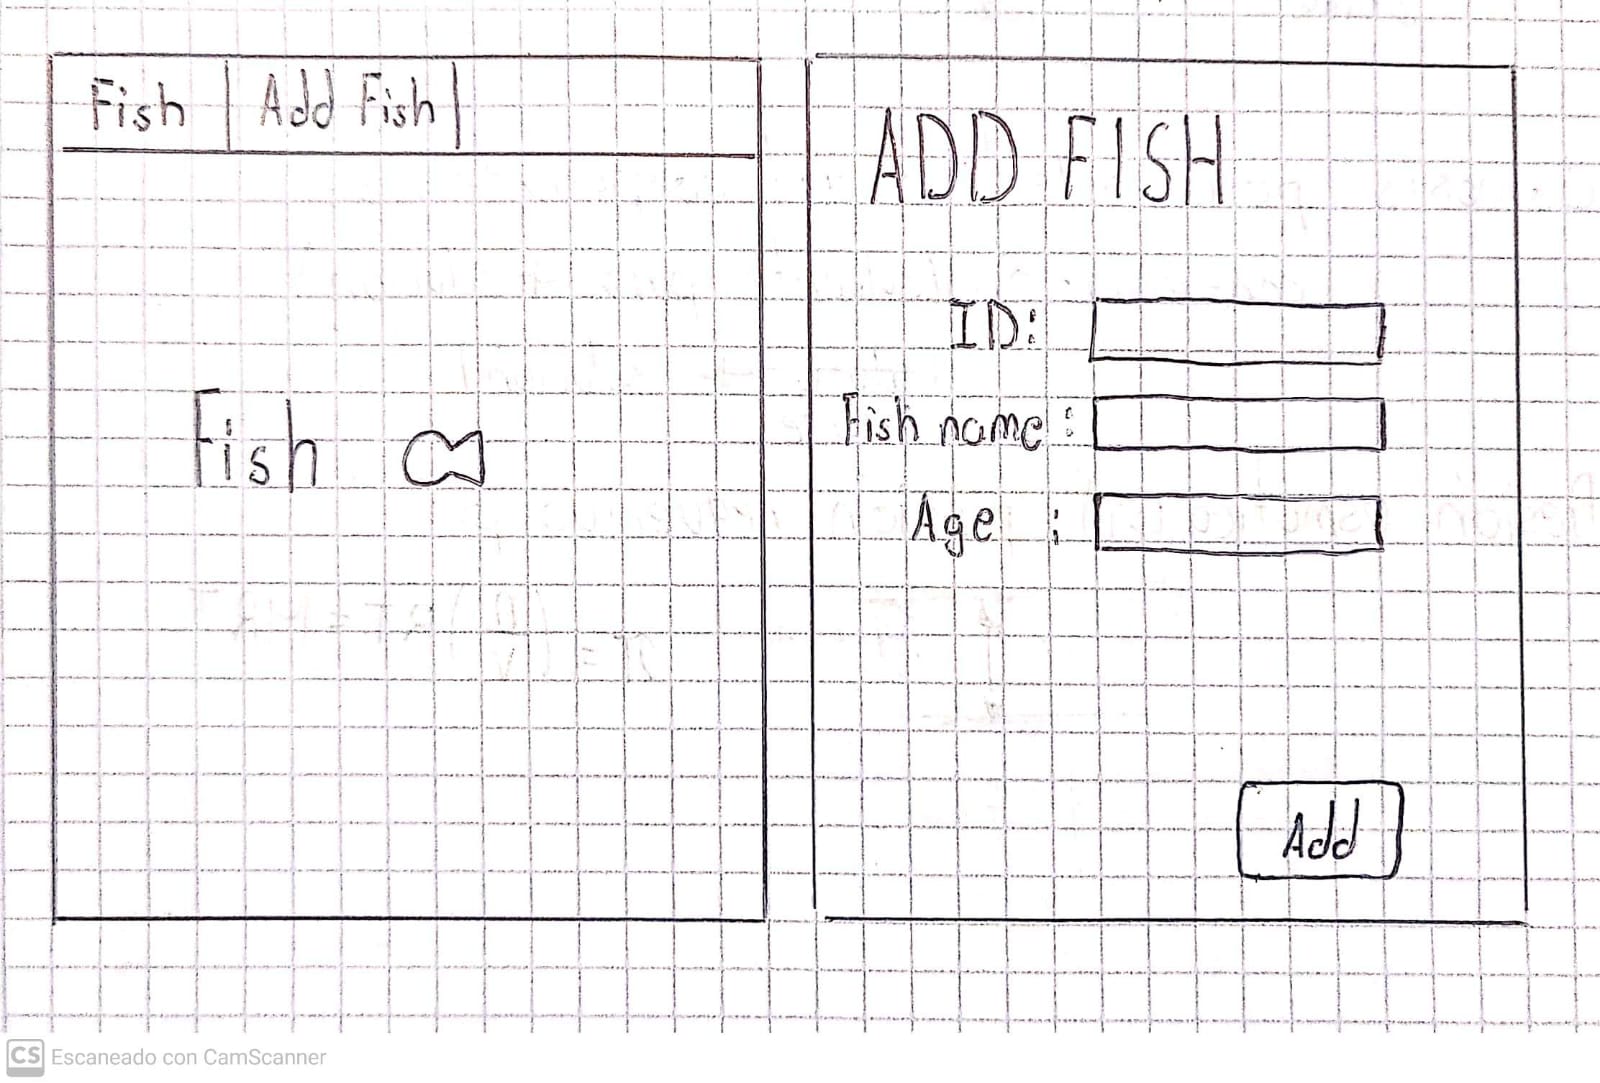 Fish | Add Fish |
Fish
ADD FISH
ID:
Fish name :
Age :
Add
CS Escaneado con CamScanner